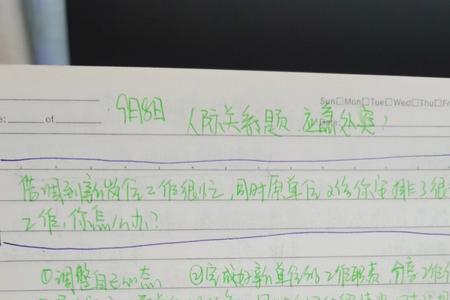 Sun□Mon□Tue□Wed□Thu□Fr
e:_____of_____
9月8日 人际关系题 应急处突?
借调到新岗位工作很忙,同时原单位又给你安排了很
工作,你怎么办?
①调整自己心态 ②完成好新单位的工作职责,